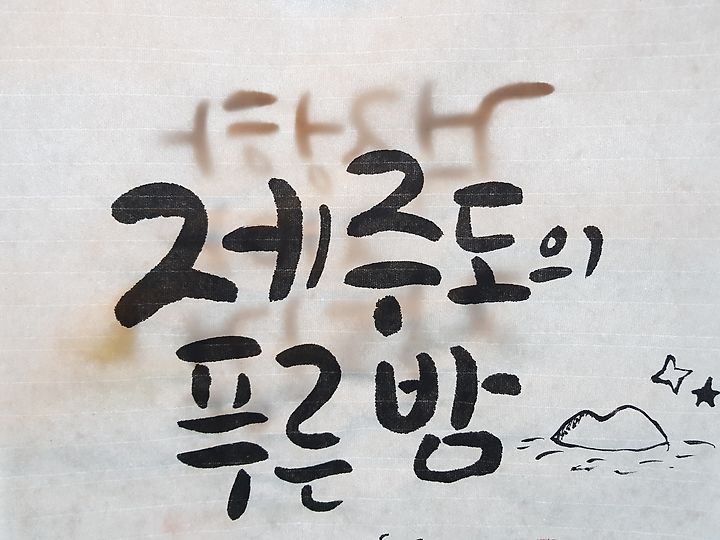 제주도의
푸른밤